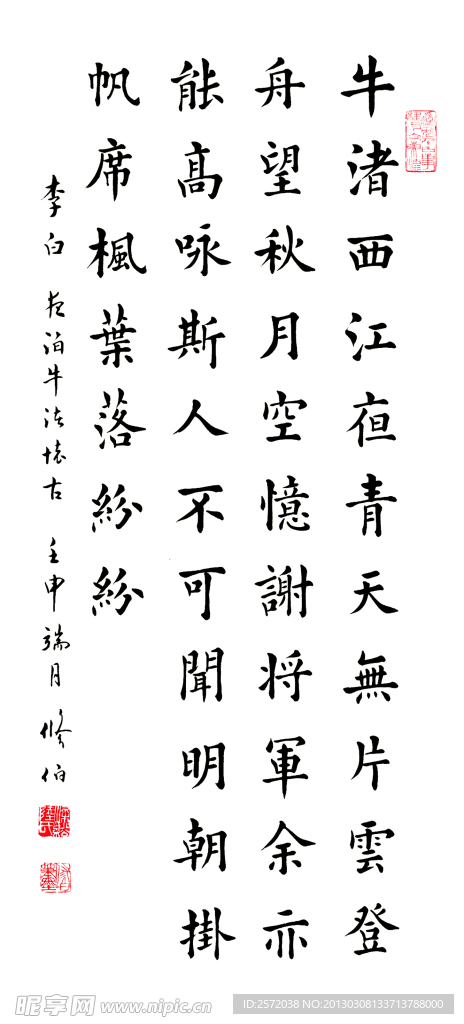 牛渚西江亱青天無片雲登
舟望秋月空憶謝将軍余亦
能髙咏斯人不可聞明朝掛
帆席楓葉落紛紛
李白 夜泊牛渚懷古 壬申端月 修伯
昵享网 www.nipic.cn
ID:2572038 NO:20130308133713788000